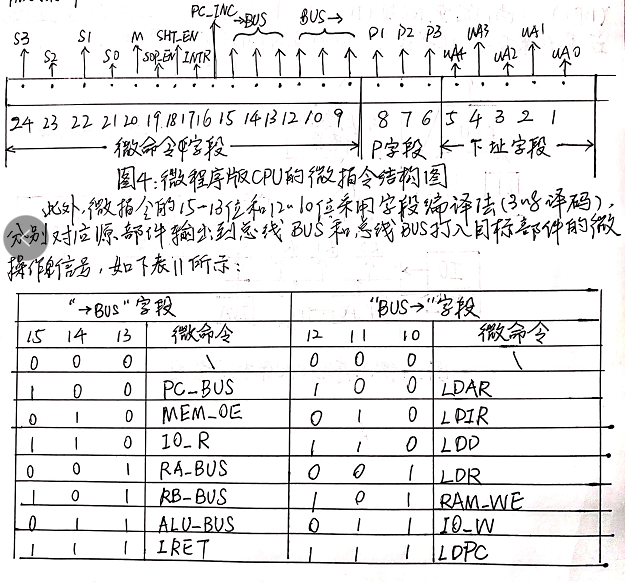 PC_INC →BUS BUS→
S3 S1 M SHT_EN P1 P2 P3 uA3 uA1
S2 S0 SOP_EN INTR uA4 uA2 uA0
24 23 22 21 20 19 18 17 16 15 14 13 12 10 9 8 7 6 5 4 3 2 1
微命令字段 P字段 下址字段
图4:微程序版CPU的微指令结构图
此外,微指令的15-13位和12-10位采用字段编译法(3-8译码),
分别对应源部件输出到总线BUS和总线BUS打入目标部件的微
操作信号,如下表11所示:
"→BUS"字段 "BUS→"字段
15 14 13 微命令 12 11 10 微命令
0 0 0 \ 0 0 0 \
1 0 0 PC_BUS 1 0 0 LDAR
0 1 0 MEM_OE 0 1 0 LDIR
1 1 0 IO_R 1 1 0 LDD
0 0 1 RA_BUS 0 0 1 LDR
1 0 1 RB_BUS 1 0 1 RAM_WE
0 1 1 ALU_BUS 0 1 1 IO_W
1 1 1 IRET 1 1 1 LDPC